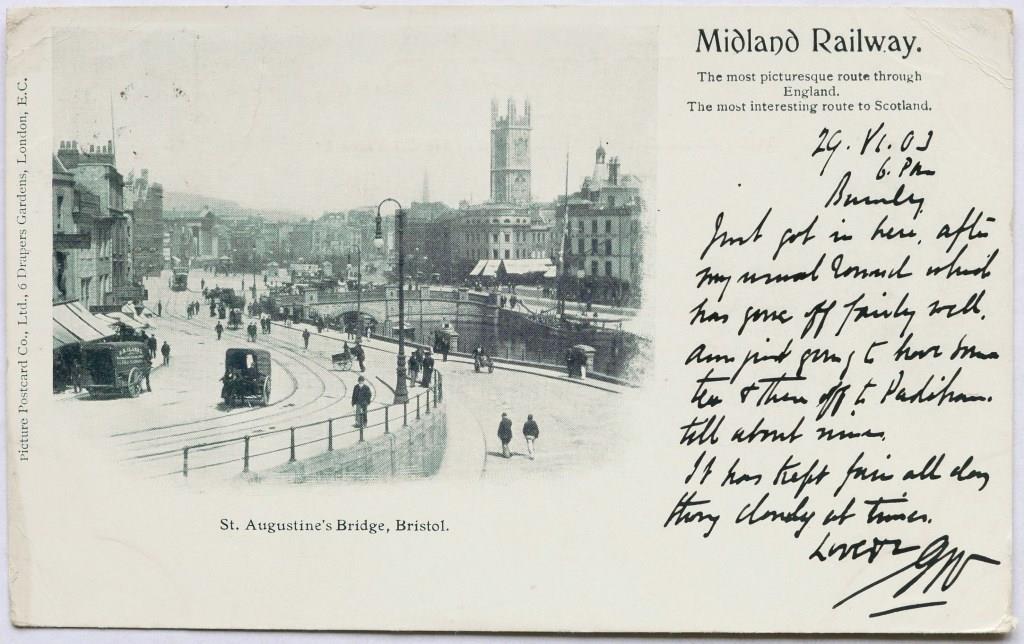 Midland Railway.
The most picturesque route through
England.
The most interesting route to Scotland.
29.VI.03
6. Pm
Burnley
Just got in here, after
my usual round which
has gone off fairly well.
Am just going to have some
tea & then off to Padiham.
till about nine.
It has kept fair all day
thoug cloudy at times.
Love
GW
St. Augustine's Bridge, Bristol.
Picture Postcard Co., Ltd., 6 Drapers Gardens, London, E.C.